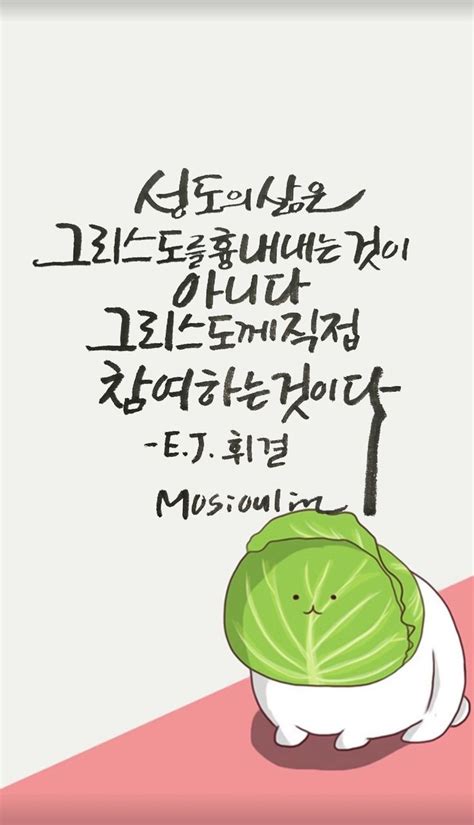 성도의 삶은
그리스도를 흉내내는 것이
아니다
그리스도께 직접
참여하는 것이다
-E.J. 휘결
Mosioulim